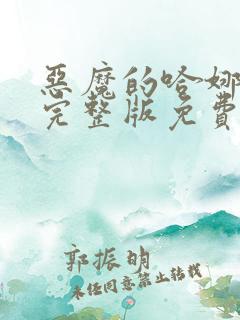 惡魔的哈娜
完整版免費
郭振明
未经同意禁止转载